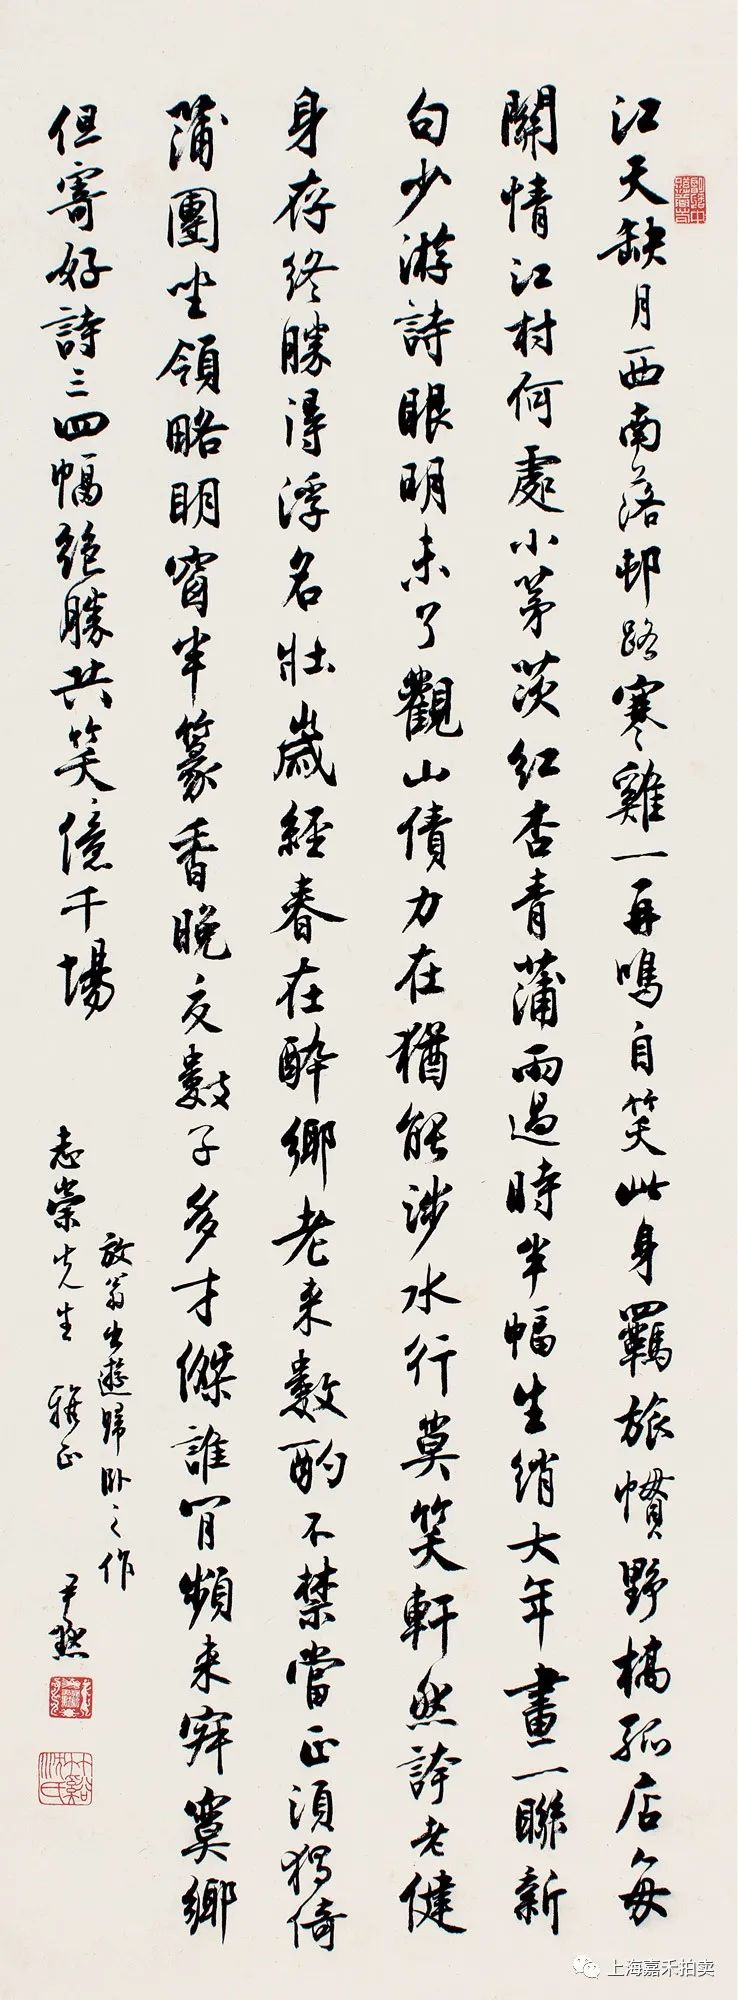 江天缺月西南落邨路寒雞一再鳴自笑此身羈旅慣野橋孤店每
關情江村何處小茅茨紅杏青蒲雨過時半幅生綃大年畫一聯新
句少游詩眼明未了觀山債力在猶能涉水行莫笑軒然誇老健
身存終勝得浮名壯歲經春在醉鄉老來數酌不禁當正須獨倚
蒲團坐領略明窗半篆香晚交數子多才傑誰肯頻來寂寞鄉
但寄好詩三四幅絕勝共笑億千場
放翁出遊歸卧之作
志榮先生 雅正
尹默
竹谿沈氏
上海嘉禾拍卖